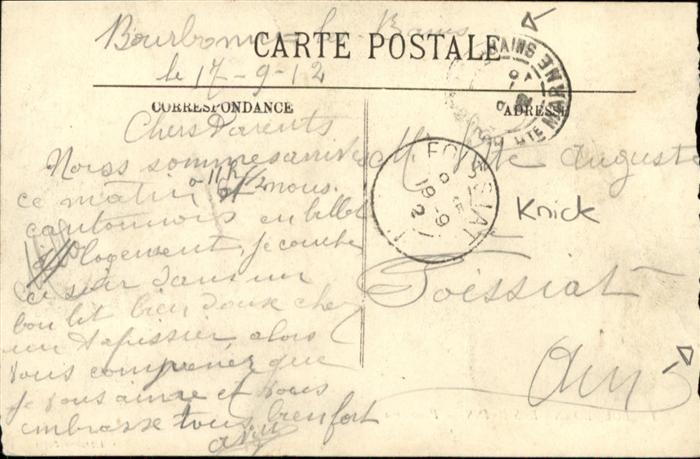 Bourbonne-les-Bains
CARTE POSTALE
le 17-9-12
CORRESPONDANCE
ADRESSE
Chers Parents
Nous sommes arrivés
ce matin a 11h 1/2 nous
cantonnons en billet
de logement je couche
ce soir dans un
bon lit bien doux chez
un tapissier alors
vous comprenez que
je vous aime et vous
embrasse tous bien fort
M. Auguste
Foissiat
Ain
Knick
BAINS
HTE MARNE
FOISSIAT
19-9